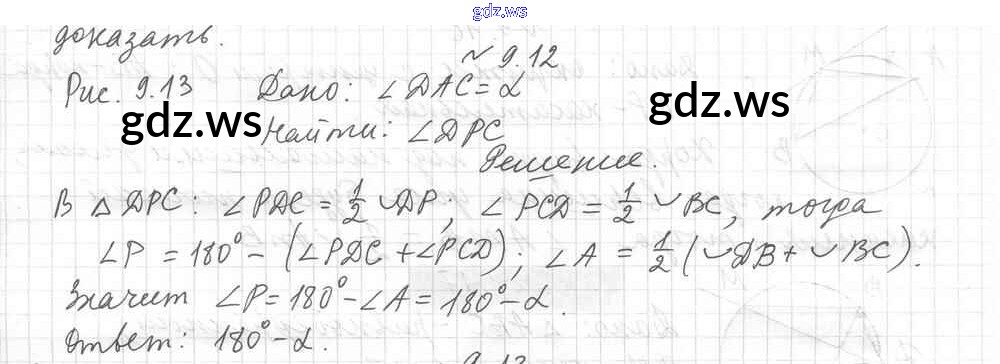 gdz.ws
доказать.
№ 9.12
Рис. 9.13 Дано: ∠DAC = α
gdz.ws
gdz.ws
Найти: ∠DPC
Решение.
В △DPC: ∠PDC = 1/2 ◡DP; ∠PCD = 1/2 ◡BC, тогда
∠P = 180° − (∠PDC + ∠PCD); ∠A = 1/2 (◡DB + ◡BC).
Значит ∠P = 180° − ∠A = 180° − α.
Ответ: 180° − α.